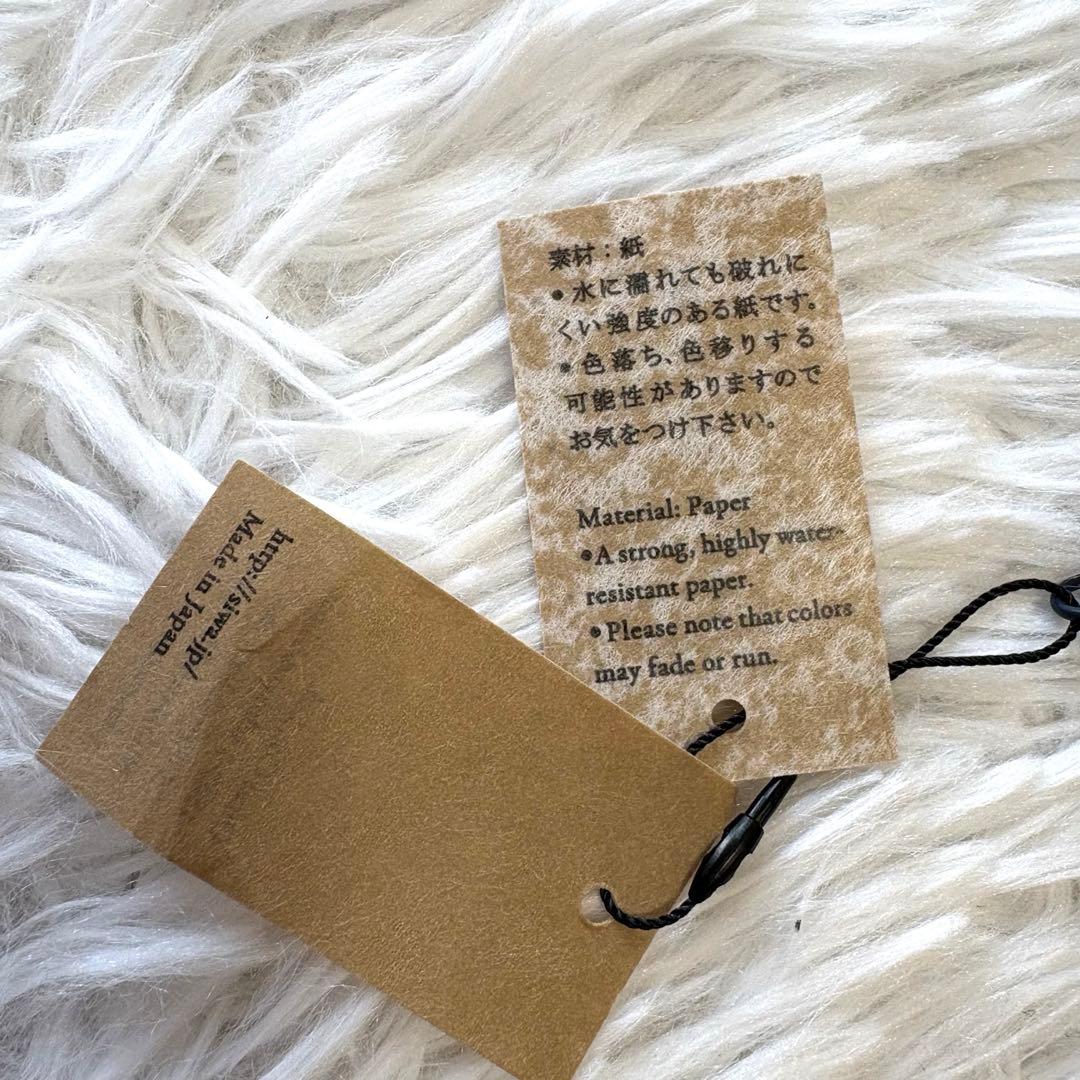 素材：紙
●水に濡れても破れに
くい強度のある紙です。
●色落ち、色移りする
可能性がありますので
お気をつけ下さい。
Material: Paper
●A strong, highly water-
resistant paper.
●Please note that colors
may fade or run.
http://siwa.jp/
Made in Japan